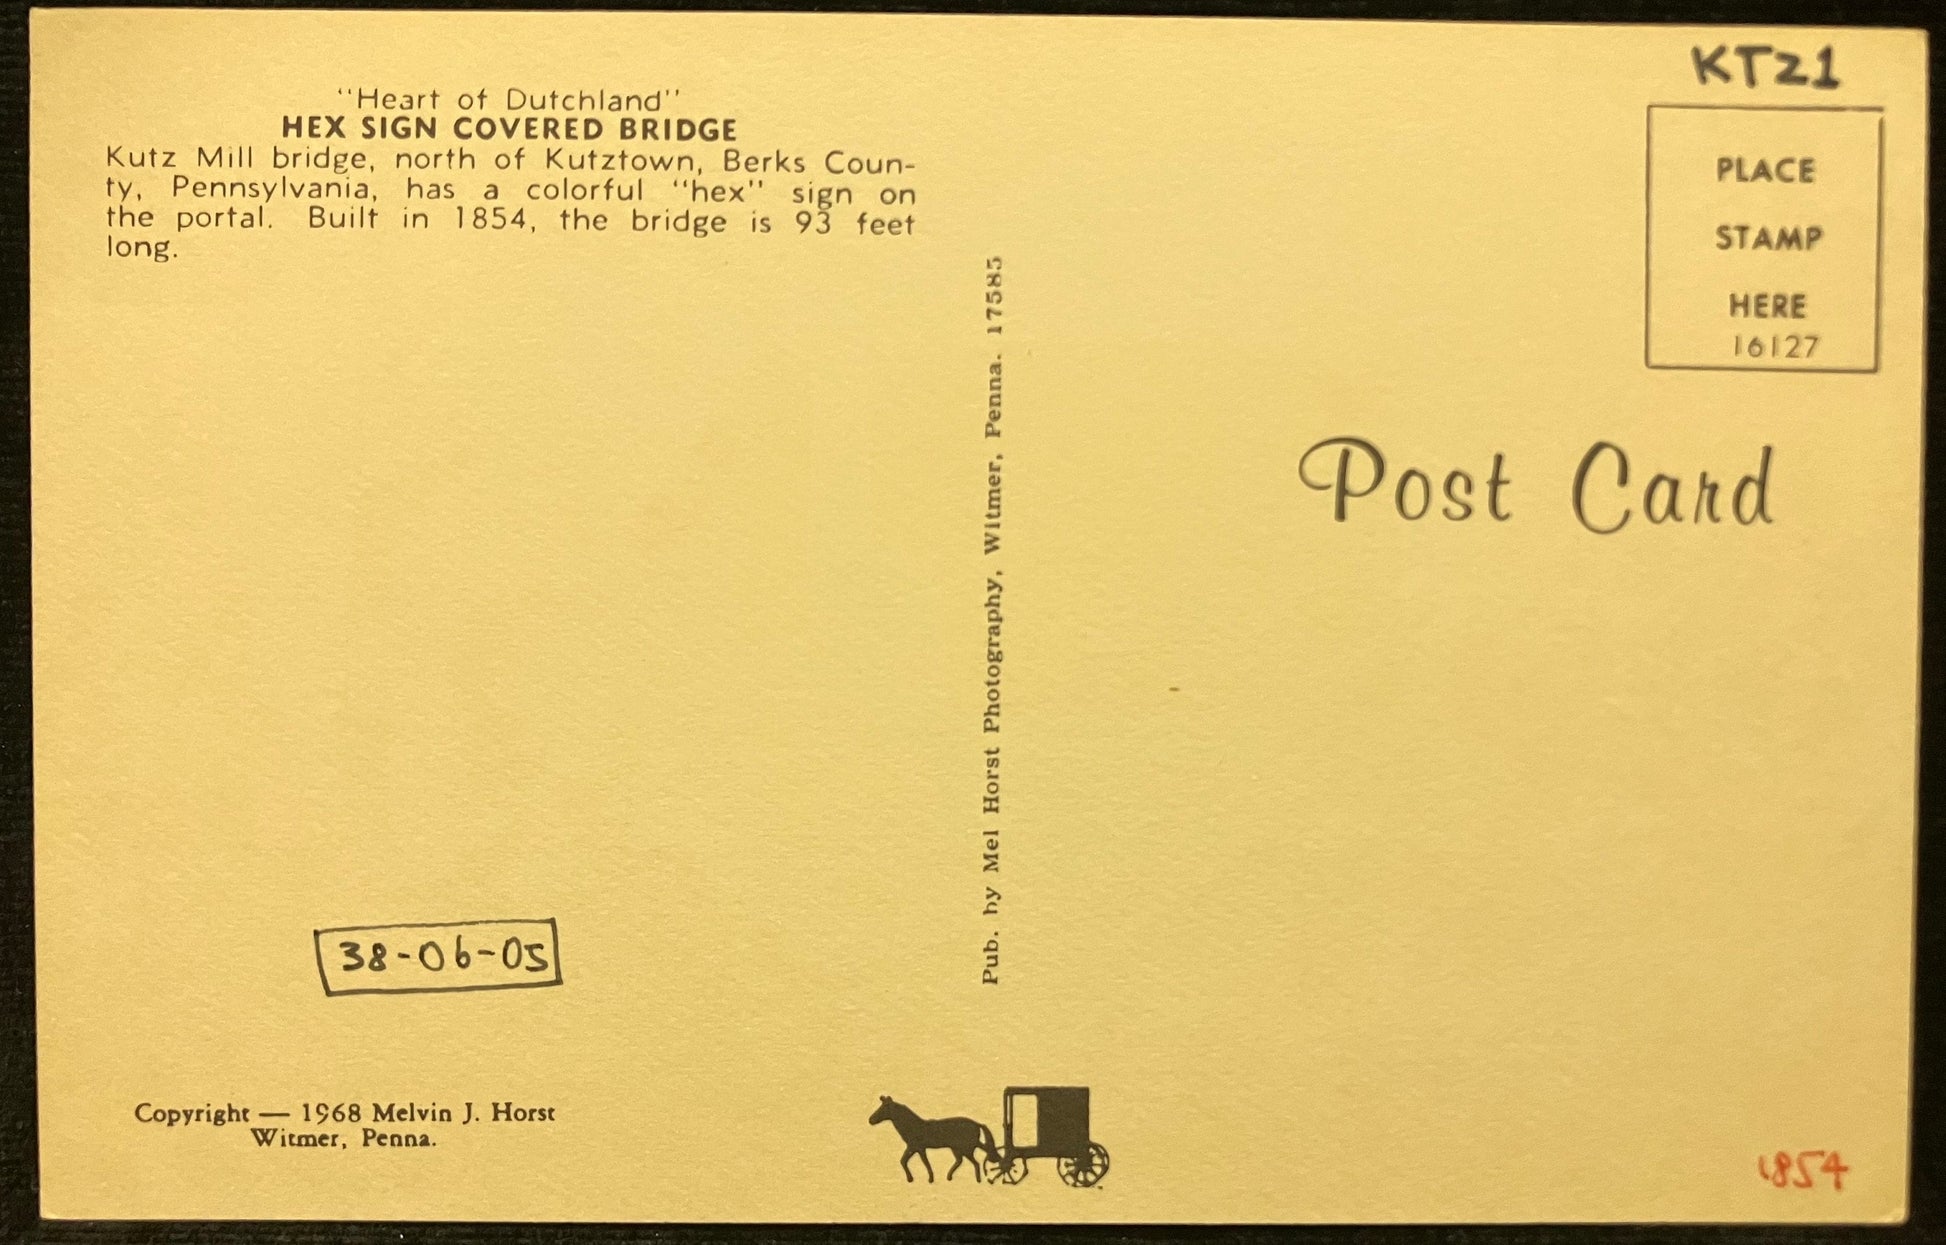 "Heart of Dutchland"
HEX SIGN COVERED BRIDGE
Kutz Mill bridge, north of Kutztown, Berks Coun-
ty, Pennsylvania, has a colorful "hex" sign on
the portal. Built in 1854, the bridge is 93 feet
long.
38-06-05
Copyright — 1968 Melvin J. Horst
Witmer, Penna.
Pub. by Mel Horst Photography, Witmer, Penna. 17585
KTZ1
PLACE
STAMP
HERE
16127
Post Card
1854